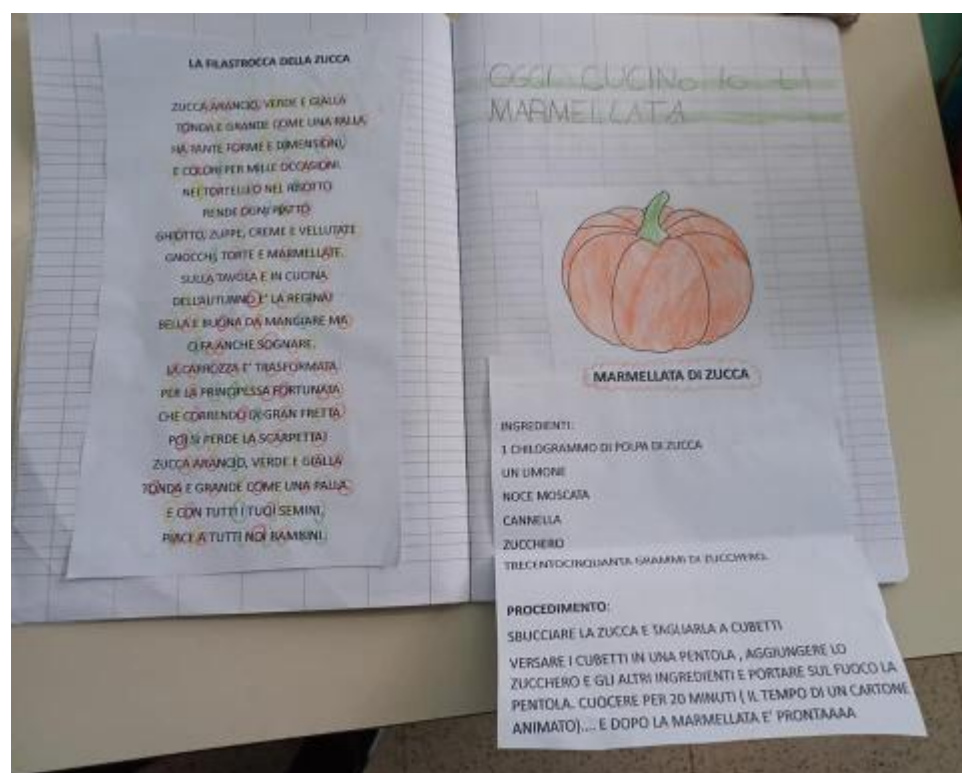 LA FILASTROCCA DELLA ZUCCA
ZUCCA ARANCIO, VERDE E GIALLA
TONDA E GRANDE COME UNA PALLA,
HA TANTE FORME E DIMENSIONI,
E COLORI PER MILLE OCCASIONI.
NEL TORTELLO NEL RISOTTO
RENDE OGNI PIATTO
GHIOTTO, ZUPPE, CREME E VELLUTATE
GNOCCHI, TORTE E MARMELLATE.
SULLA TAVOLA E IN CUCINA
DELL'AUTUNNO E' LA REGINA!
BELLA E BUONA DA MANGIARE MA
CI FA ANCHE SOGNARE.
LA CARROZZA E' TRASFORMATA
PER LA PRINCIPESSA FORTUNATA
CHE CORRENDO DI GRAN FRETTA
POI SI PERDE LA SCARPETTA!
ZUCCA ARANCIO, VERDE E GIALLA
TONDA E GRANDE COME UNA PALLA,
E CON TUTTI I TUOI SEMINI,
PIACE A TUTTI NOI BAMBINI.
OGGI CUCINO IO TI
MARMELLATA
MARMELLATA DI ZUCCA
INGREDIENTI:
1 CHILOGRAMMO DI POLPA DI ZUCCA
UN LIMONE
NOCE MOSCATA
CANNELLA
ZUCCHERO
TRECENTOCINQUANTA GRAMMI DI ZUCCHERO.
PROCEDIMENTO:
SBUCCIARE LA ZUCCA E TAGLIARLA A CUBETTI
VERSARE I CUBETTI IN UNA PENTOLA , AGGIUNGERE LO
ZUCCHERO E GLI ALTRI INGREDIENTI E PORTARE SUL FUOCO LA
PENTOLA. CUOCERE PER 20 MINUTI ( IL TEMPO DI UN CARTONE
ANIMATO).... E DOPO LA MARMELLATA E' PRONTAAAA